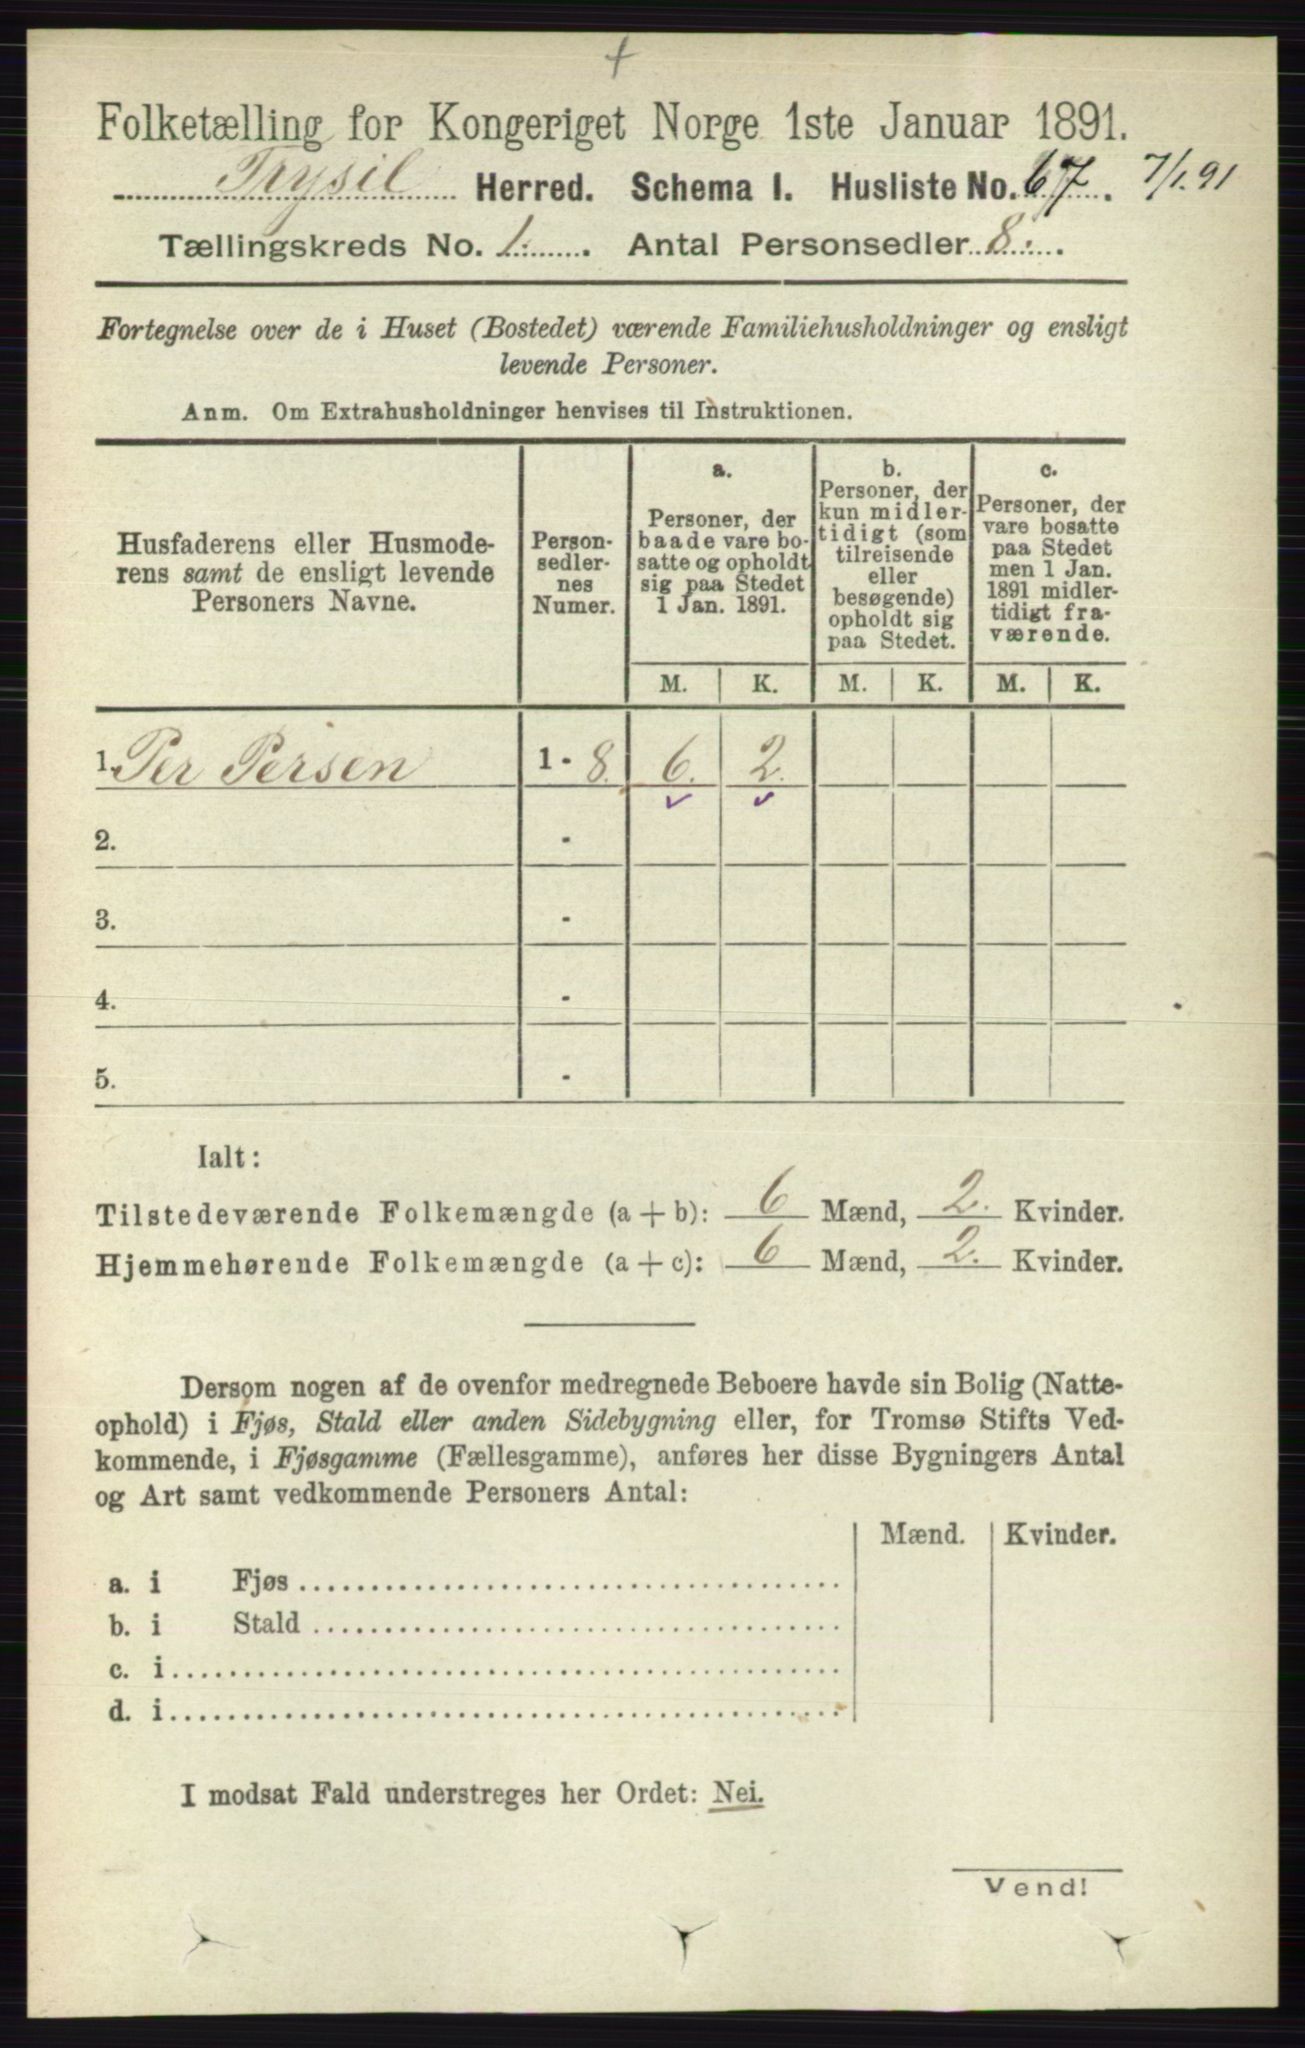 Folketælling for Kongeriget Norge 1ste Januar 1891.
Trysil Herred. Schema I. Husliste No. 67. 7/1.91
Tællingskreds No. 1. Antal Personsedler 8.
Fortegnelse over de i Huset (Bostedet) værende Familiehusholdninger og ensligt
levende Personer.
Anm. Om Extrahusholdninger henvises til Instruktionen.
Husfaderens eller Husmode-
rens samt de ensligt levende
Personers Navne.
Person-
sedler-
nes
Numer.
a.
Personer, der
baade vare bo-
satte og opholdt
sig paa Stedet
1 Jan. 1891.
b.
Personer, der
kun midler-
tidigt (som
tilreisende
eller
besøgende)
opholdt sig
paa Stedet.
c.
Personer, der
vare bosatte
paa Stedet
men 1 Jan.
1891 midler-
tidigt fra-
værende.
M. K. M. K. M. K.
1. Per Persen 1 - 8. 6. 2.
2. -
3. -
4. -
5. -
Ialt:
Tilstedeværende Folkemængde (a + b): 6 Mænd, 2. Kvinder.
Hjemmehørende Folkemængde (a + c): 6 Mænd, 2. Kvinder.
Dersom nogen af de ovenfor medregnede Beboere havde sin Bolig (Natte-
ophold) i Fjøs, Stald eller anden Sidebygning eller, for Tromsø Stifts Ved-
kommende, i Fjøsgamme (Fællesgamme), anføres her disse Bygningers Antal
og Art samt vedkommende Personers Antal:
Mænd. Kvinder.
a. i Fjøs
b. i Stald
c. i
d. i
I modsat Fald understreges her Ordet: Nei.
Vend!